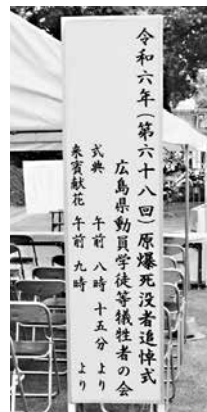 令和六年(第六十八回)原爆死没者追悼式
広島県動員学徒等犠牲者の会
式典 午前 八時 十五分 より
来賓献花 午前 九時 より